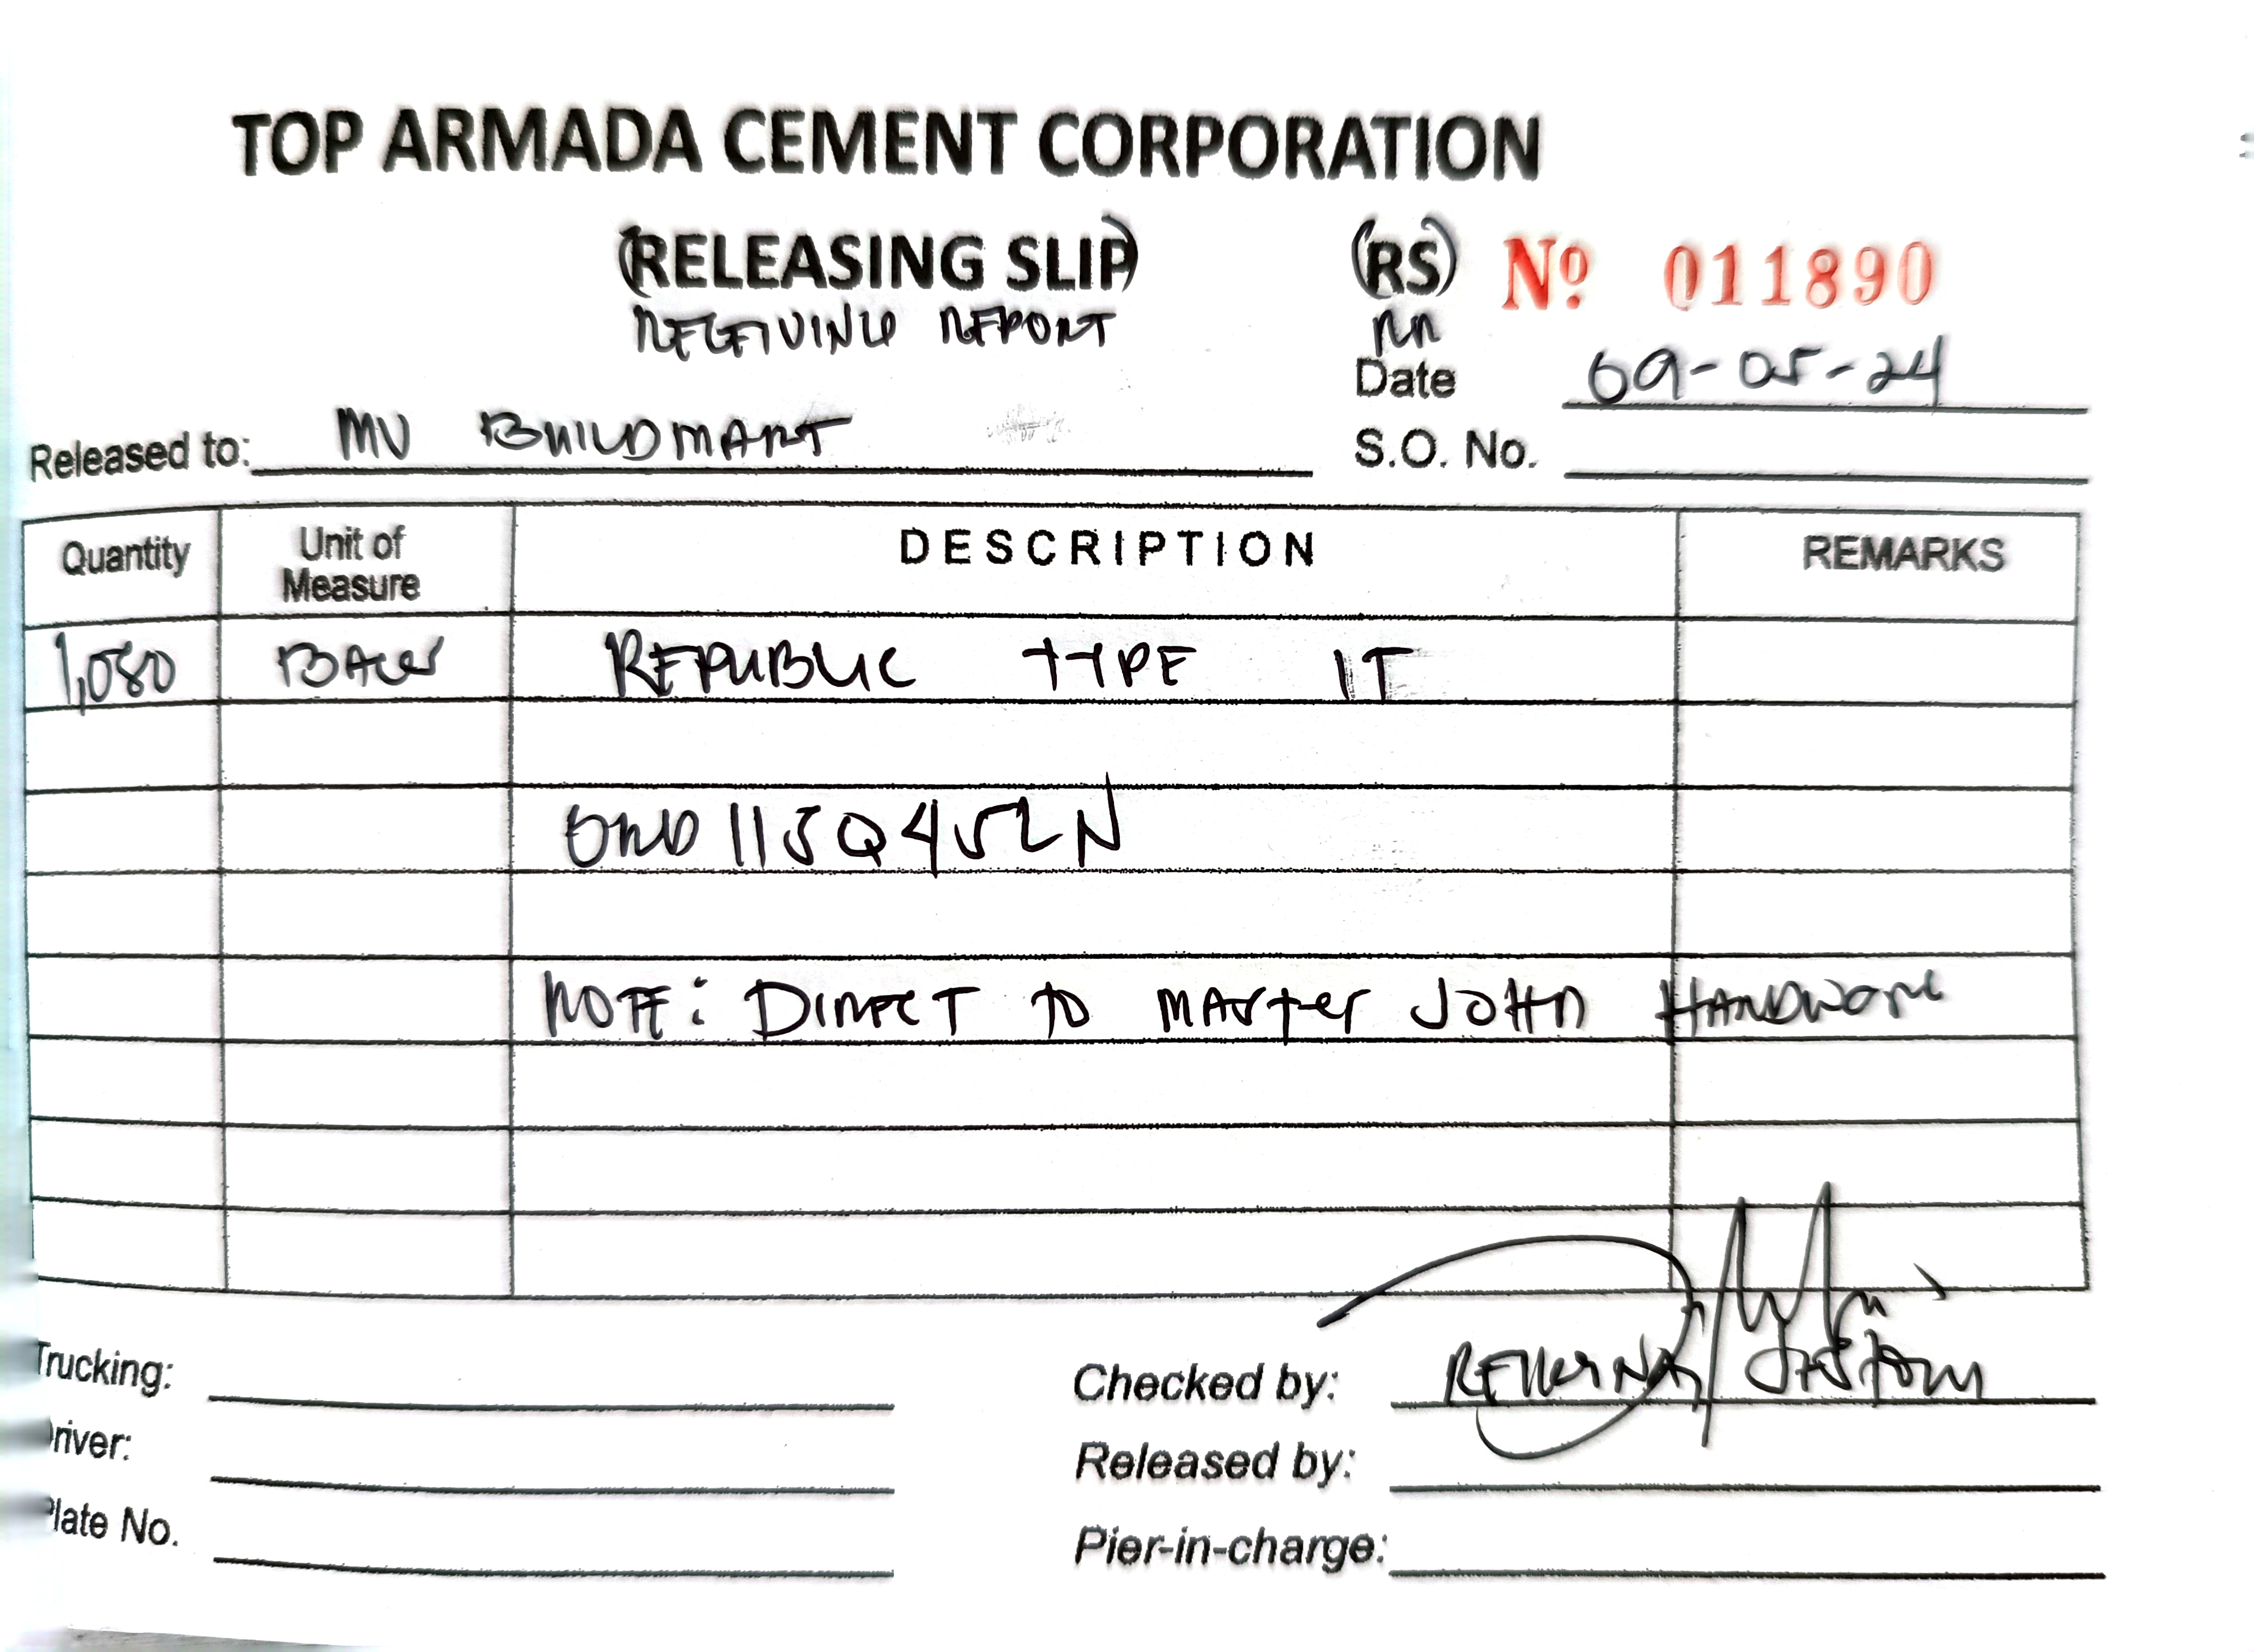 TOP ARMADA CEMENT CORPORATION
(RELEASING SLIP) (RS) Nº 011890
RECEIVING REPORT RR
Date 09-05-24
Released to: MV BUILDMART S.O. No.
Quantity Unit of Measure DESCRIPTION REMARKS
1,080 BAGS REPUBLIC TYPE 1T
115Q452N
NOTE: DIRECT TO MASTER JOHN HARDWARE
Trucking: Checked by:
Driver: Released by:
Plate No. Pier-in-charge: